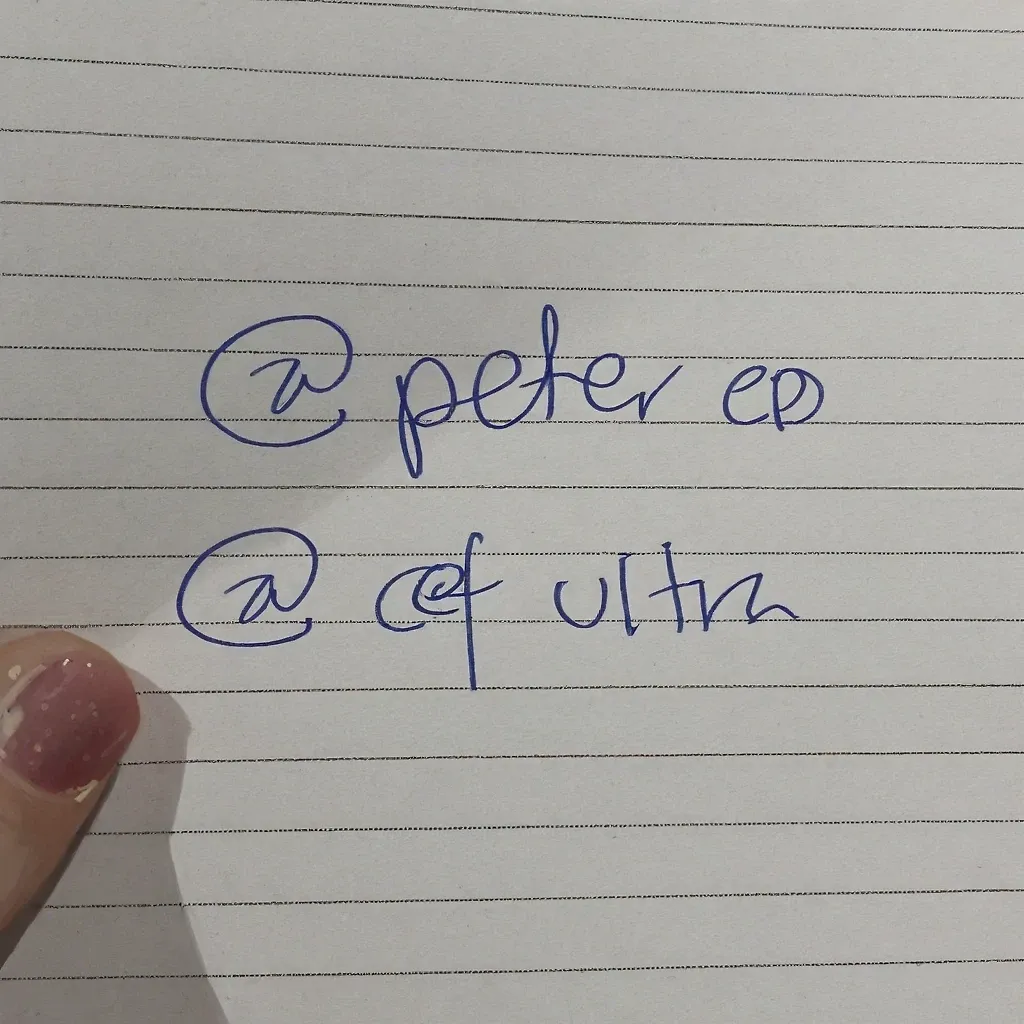 @peter ep
@cef ultra